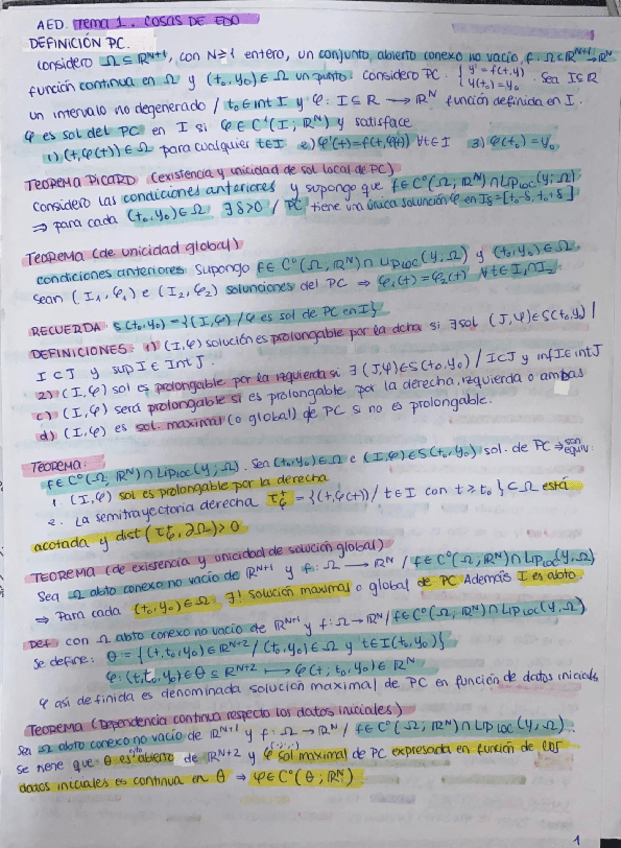 AED. Tema 1. COSAS DE EDO
DEFINICIÓN PC.
Considero Ω ⊆ ℝ^{N+1}, con N ≥ 1 entero, un conjunto abierto conexo no vacío, f: Ω ⊆ ℝ^{N+1} → ℝ^N
función continua en Ω y (t₀, y₀) ∈ Ω un punto. Considero PC. { y' = f(t,y) y(t₀) = y₀ . Sea I ⊆ ℝ
un intervalo no degenerado / t₀ ∈ int I y φ: I ⊆ ℝ → ℝ^N función definida en I.
φ es sol del PC en I si φ ∈ C¹(I; ℝ^N) y satisface
1) (t, φ(t)) ∈ Ω para cualquier t ∈ I 2) φ'(t) = f(t, φ(t)) ∀t ∈ I 3) φ(t₀) = y₀
TEOREMA PICARD (existencia y unicidad de sol local de PC)
Considero las condiciones anteriores y supongo que f ∈ C⁰(Ω; ℝ^N) ∩ Lip_loc(y; Ω)
⇒ para cada (t₀, y₀) ∈ Ω ∃ δ > 0 / PC tiene una única solución φ en Iδ = [t₀-δ, t₀+δ]
TEOREMA (de unicidad global)
condiciones anteriores. Supongo f ∈ C⁰(Ω, ℝ^N) ∩ Lip_loc(y, Ω) y (t₀, y₀) ∈ Ω
Sean (I₁, φ₁) e (I₂, φ₂) soluciones del PC ⇒ φ₁(t) = φ₂(t) ∀t ∈ I₁ ∩ I₂
RECUERDA S(t₀, y₀) = {(I, φ) / φ es sol de PC en I}
DEFINICIONES: 1) (I, φ) solución es prolongable por la dcha si ∃ sol (J, ψ) ∈ S(t₀, y₀) /
I ⊂ J y sup I ∈ Int J.
2) (I, φ) sol es prolongable por la izquierda si ∃ (J, ψ) ∈ S(t₀, y₀) / I ⊂ J y inf I ∈ int J
c) (I, φ) será prolongable si es prolongable por la derecha, izquierda o ambas
d) (I, φ) es sol. maximal (o global) de PC si no es prolongable.
TEOREMA:
f ∈ C⁰(Ω, ℝ^N) ∩ Lip_loc(y; Ω). Sea (t₀, y₀) ∈ Ω e (I, φ) ∈ S(t₀, y₀) sol. de PC ⇒ son equiv:
1. (I, φ) sol es prolongable por la derecha
2. La semitrayectoria derecha τ⁺_φ = {(t, φ(t)) / t ∈ I con t ≥ t₀} ⊂ Ω está
acotada y dist(τ⁺_φ, ∂Ω) > 0
TEOREMA (de existencia y unicidad de solución global)
Sea Ω abto conexo no vacío de ℝ^{N+1} y f: Ω → ℝ^N / f ∈ C⁰(Ω; ℝ^N) ∩ Lip_loc(y, Ω)
⇒ Para cada (t₀, y₀) ∈ Ω ∃! solución maximal o global de PC Además I es abto.
Def con Ω abto conexo no vacío de ℝ^{N+1} y f: Ω → ℝ^N / f ∈ C⁰(Ω; ℝ^N) ∩ Lip_loc(y, Ω)
se define: Θ = {(t, t₀, y₀) ∈ ℝ^{N+2} / (t₀, y₀) ∈ Ω y t ∈ I(t₀, y₀)}
φ: (t, t₀, y₀) ∈ Θ ⊆ ℝ^{N+2} ⟼ φ(t; t₀, y₀) ∈ ℝ^N
φ así definida es denominada solución maximal de PC en función de datos iniciales
TEOREMA (Dependencia continua respecto los datos iniciales)
Sea Ω abto conexo no vacío de ℝ^{N+1} y f: Ω → ℝ^N / f ∈ C⁰(Ω; ℝ^N) ∩ Lip_loc(y, Ω).
Se tiene que Θ es abierto de ℝ^{N+2} y φ(·;·,·) sol maximal de PC expresada en función de los
datos iniciales es continua en Θ ⇒ φ ∈ C⁰(Θ; ℝ^N)
1